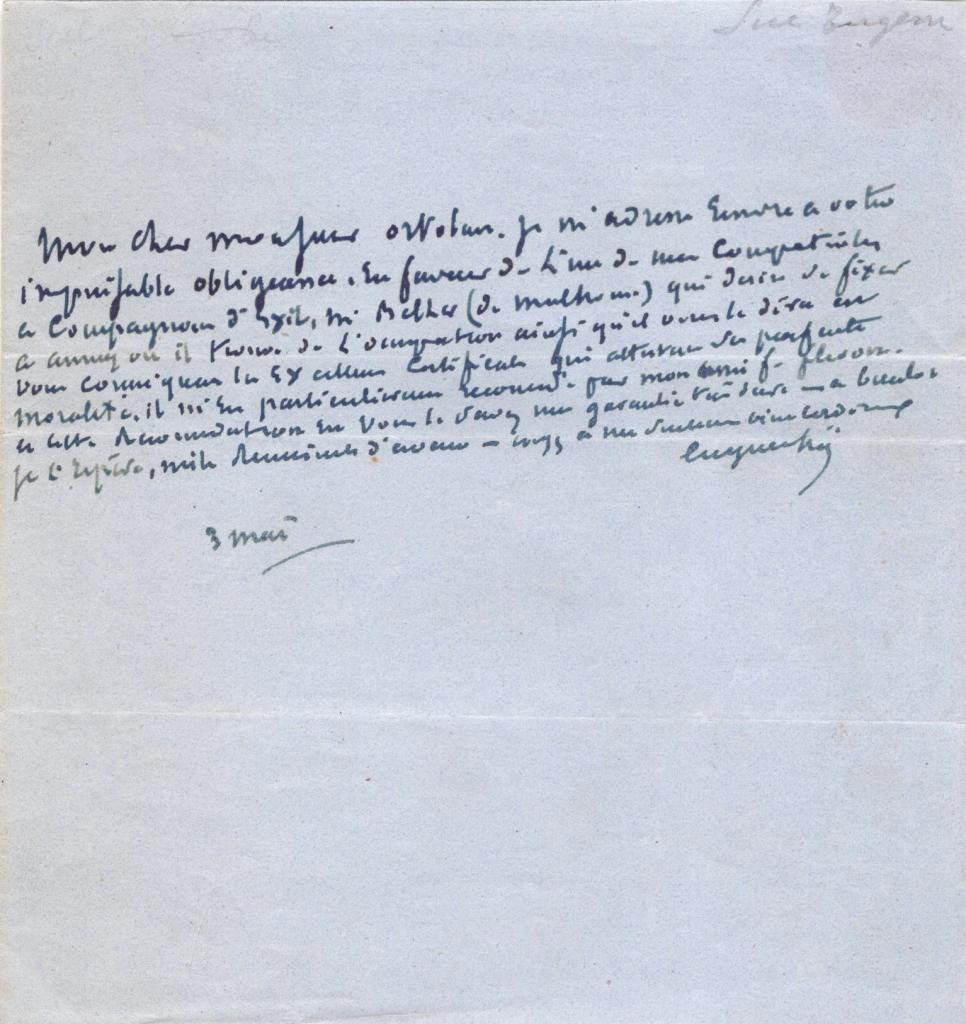 Sue Eugene
Mon cher monsieur ortolan. Je m'adresse Encore a votre
inepuisable obligeance. En faveur de L'un de mes Compatriotes
a Compagnon d'Exil, mr (de mulhouse) qui desire se fixer
a annecy ou il trouve de L'occupation ainsi qu'il vous le dira en
vous Comuniquant les Excellents Certificats qui attestent sa parfaite
moralité. il m'est particulierement recomandé par mon ami f.
et cette Recomandation Est vous le savez une garantie — a bientot
je L'Espère, mille Remerciments d'avance — a mes sentiments bien
Eugene Sue
3 mai